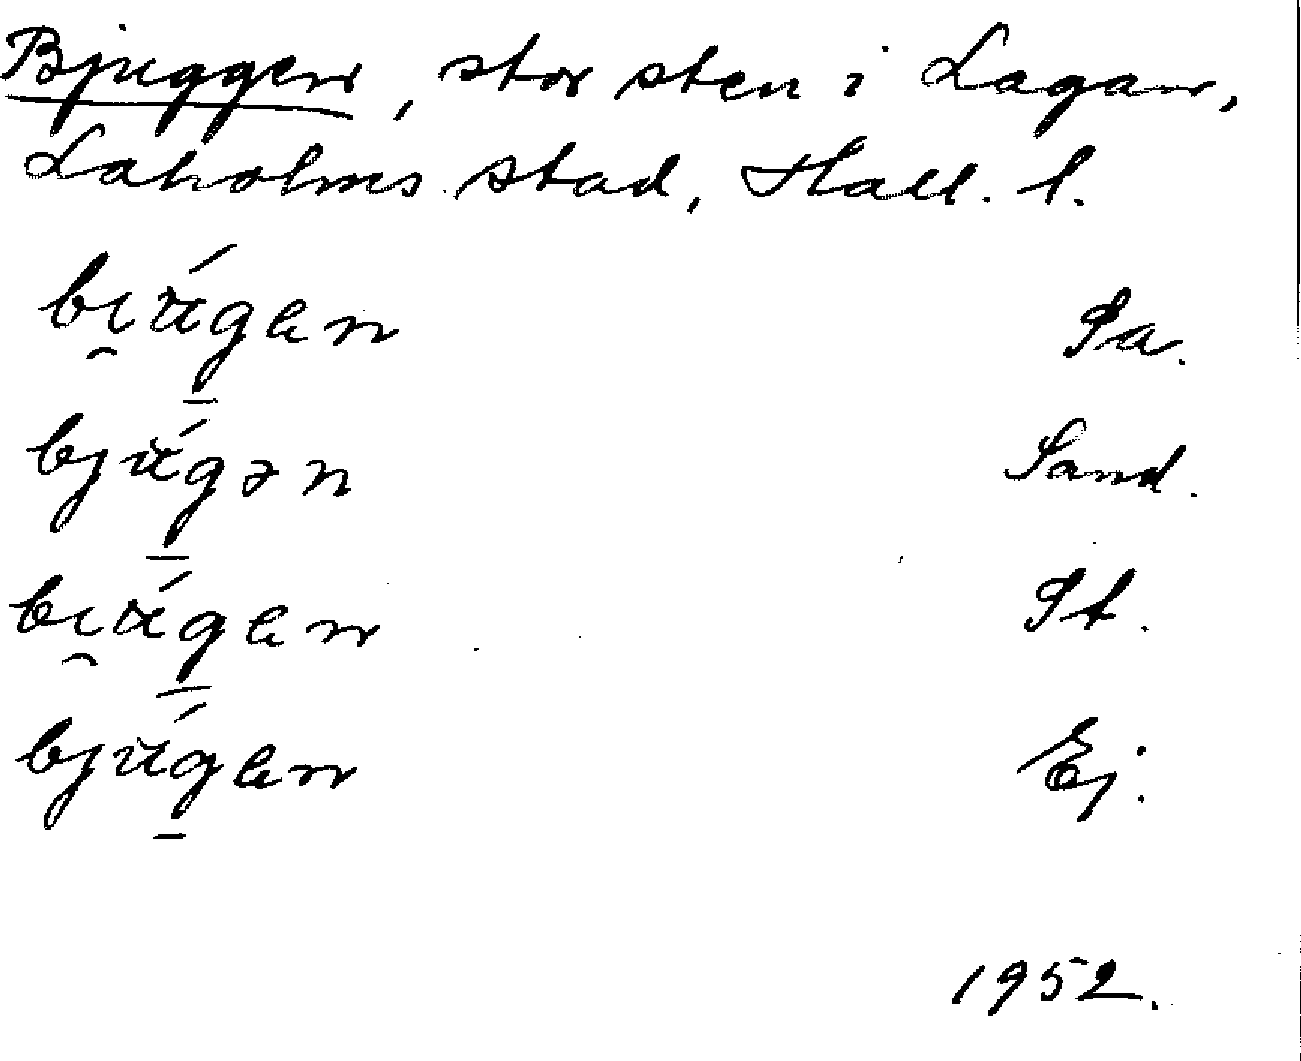 Bjuggen, stor sten i Lagan,
Laholms stad, Hall. l.
bi̯úg̱en Sa.
bjúg̱ən Sand.
bi̯úg̱en St.
bjúg̱en Ej.
1952.